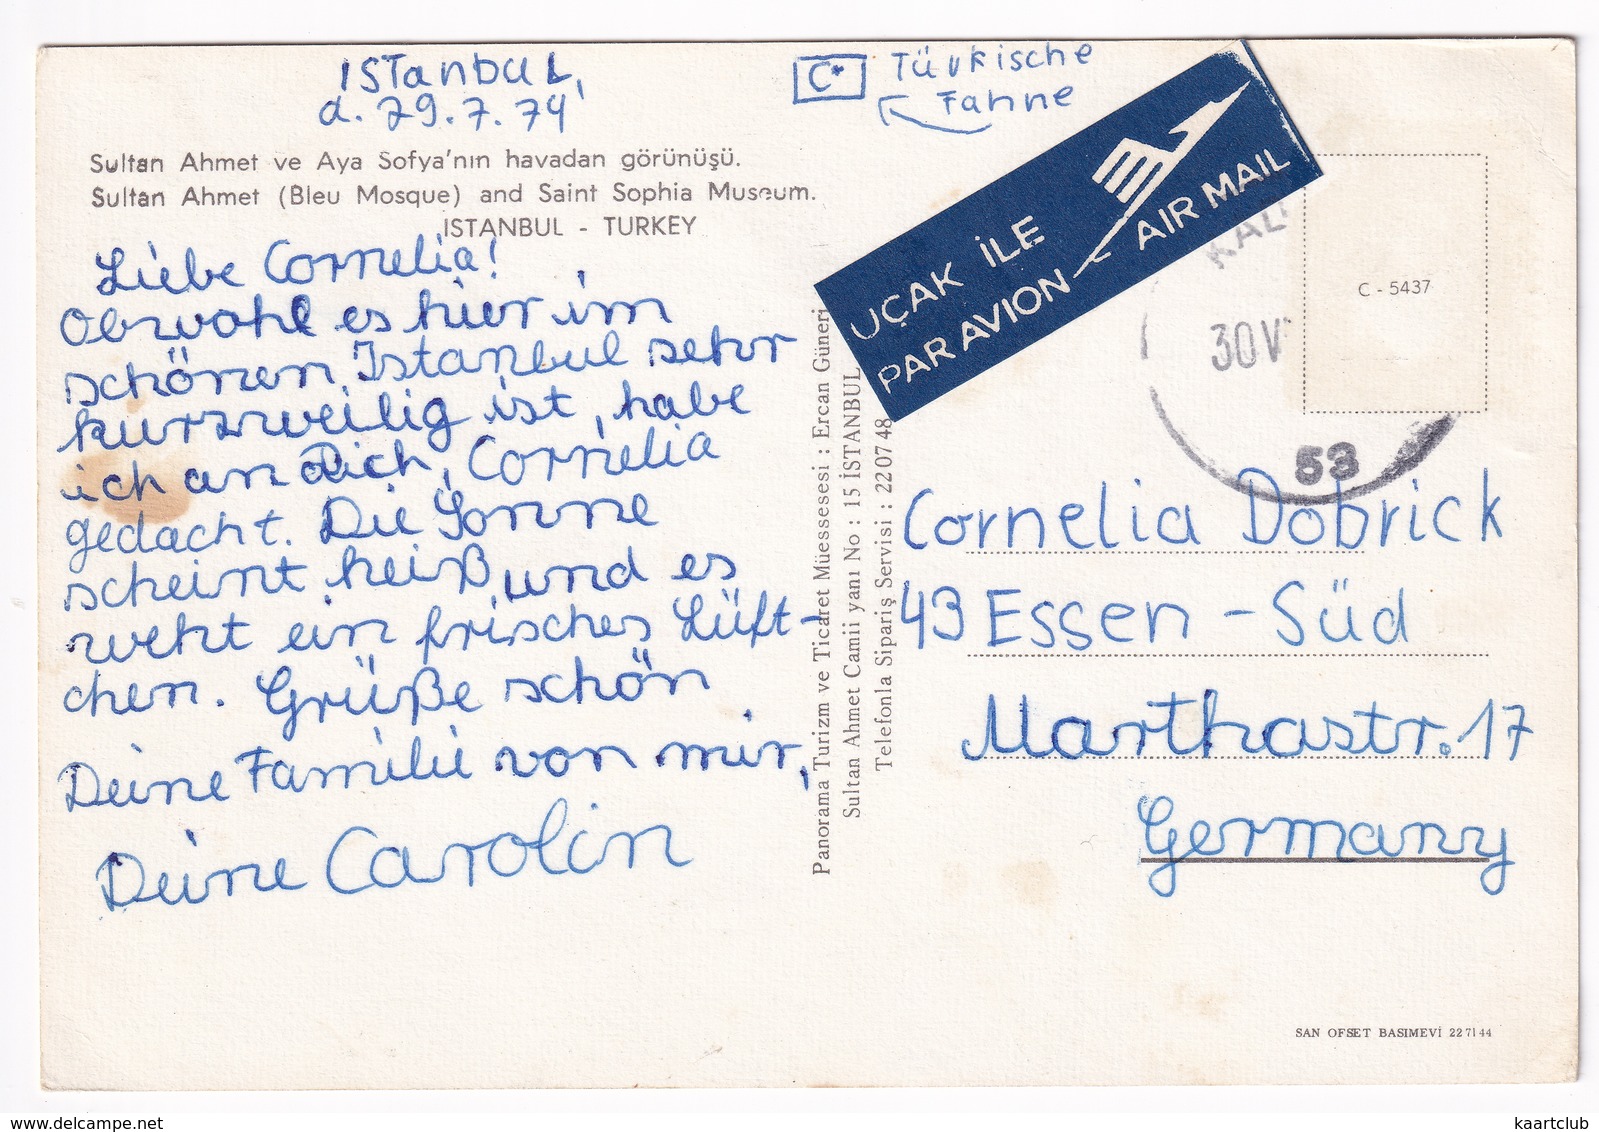 ISTanbuL,
d. 29.7.74
C* Türkische
Fahne
Sultan Ahmet ve Aya Sofya'nın havadan görünüşü.
Sultan Ahmet (Bleu Mosque) and Saint Sophia Museum.
ISTANBUL - TURKEY
Liebe Cornelia!
Obwohl es hier im
schönen Istanbul sehr
kurzweilig ist, habe
ich an Dich, Cornelia
gedacht. Die Sonne
scheint heiß, und es
weht ein frisches Lüft-
chen. Grüße schön
Deine Familie von mir,
Deine Carolin
Panorama Turizm ve Ticaret Müessesesi : Ercan Güneri
Sultan Ahmet Camii yanı No : 15 İSTANBUL
Telefonla Sipariş Servisi : 22 07 48
UÇAK İLE
PAR AVION
AIR MAIL
30 V
53
C - 5437
Cornelia Dobrick
43 Essen - Süd
Marthastr. 17
Germany
SAN OFSET BASIMEVİ 22 71 44
delcampe.net
kaartclub